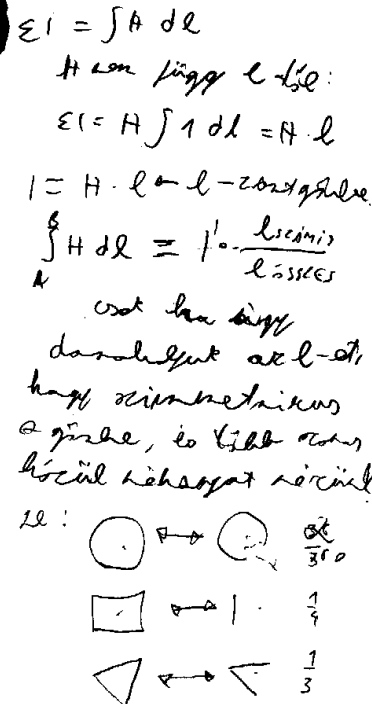 ΣI = ∫H dl
H nem függ l-től:
ΣI = H ∫1 dl = H·l
I = H·l ← l - zárt görbe
∫_A^B H dl = I · l_számít / l_összes
csak ha úgy
daraboljuk az l-et,
hogy szimmetrikus
a görbe, és több azonos
közül néhányat nézünk
pl:
α/360
1/4
1/3